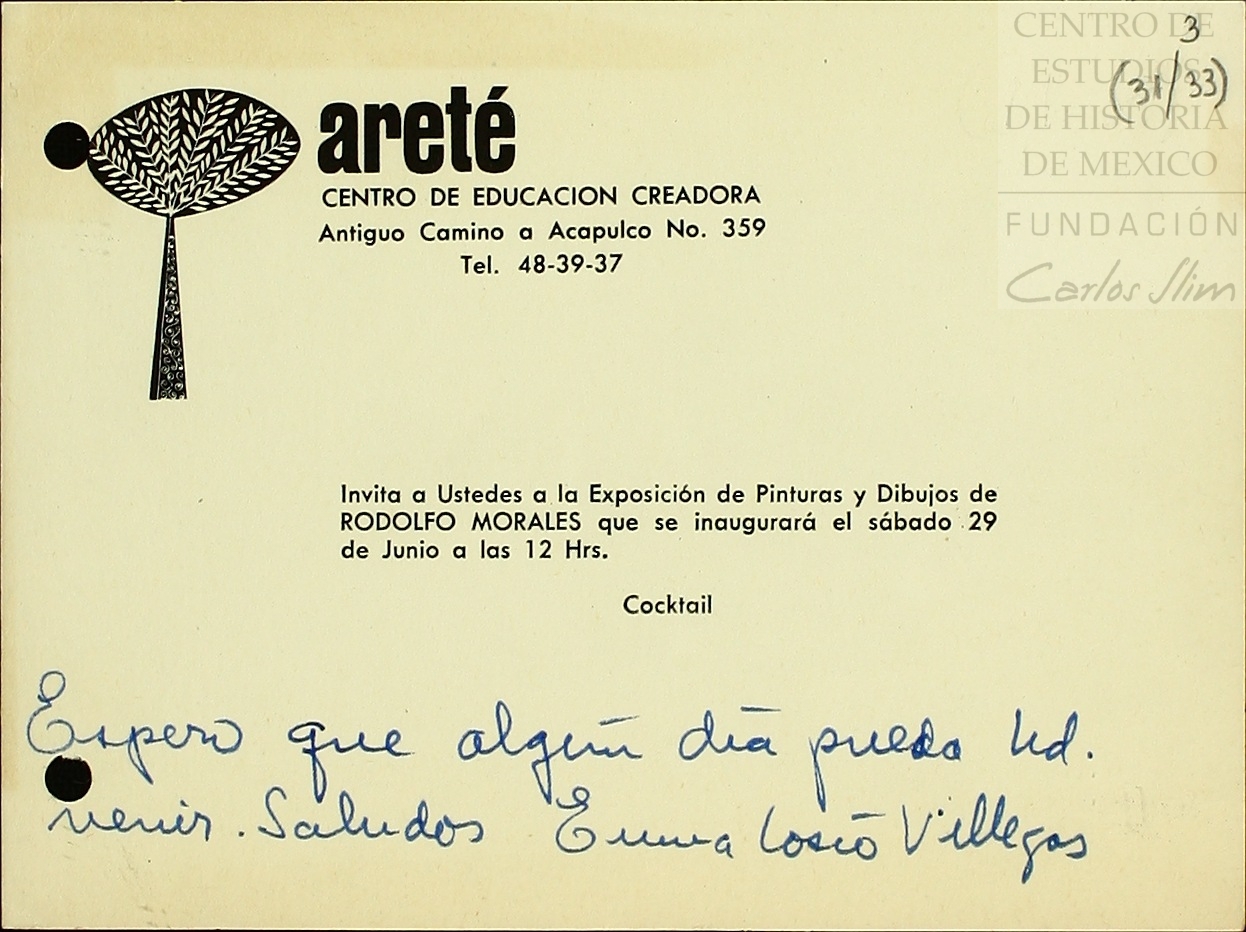 CENTRO DE
ESTUDIOS
DE HISTORIA
DE MEXICO
FUNDACIÓN
Carlos Slim
3
(31/33)
areté
CENTRO DE EDUCACION CREADORA
Antiguo Camino a Acapulco No. 359
Tel. 48-39-37
Invita a Ustedes a la Exposición de Pinturas y Dibujos de
RODOLFO MORALES que se inaugurará el sábado 29
de Junio a las 12 Hrs.
Cocktail
Espero que algún día pueda Ud.
venir. Saludos Emma Cosío Villegas